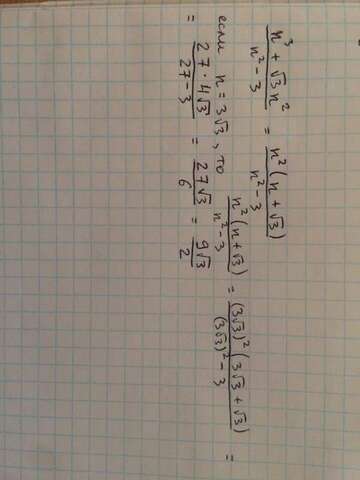 n³ + √3 n² / n² - 3 = n² (n + √3) / n² - 3
если n = 3√3, то n² (n + √3) / n² - 3 = (3√3)² (3√3 + √3) / (3√3)² - 3 =
= 27 · 4√3 / 27 - 3 = 27√3 / 6 = 9√3 / 2